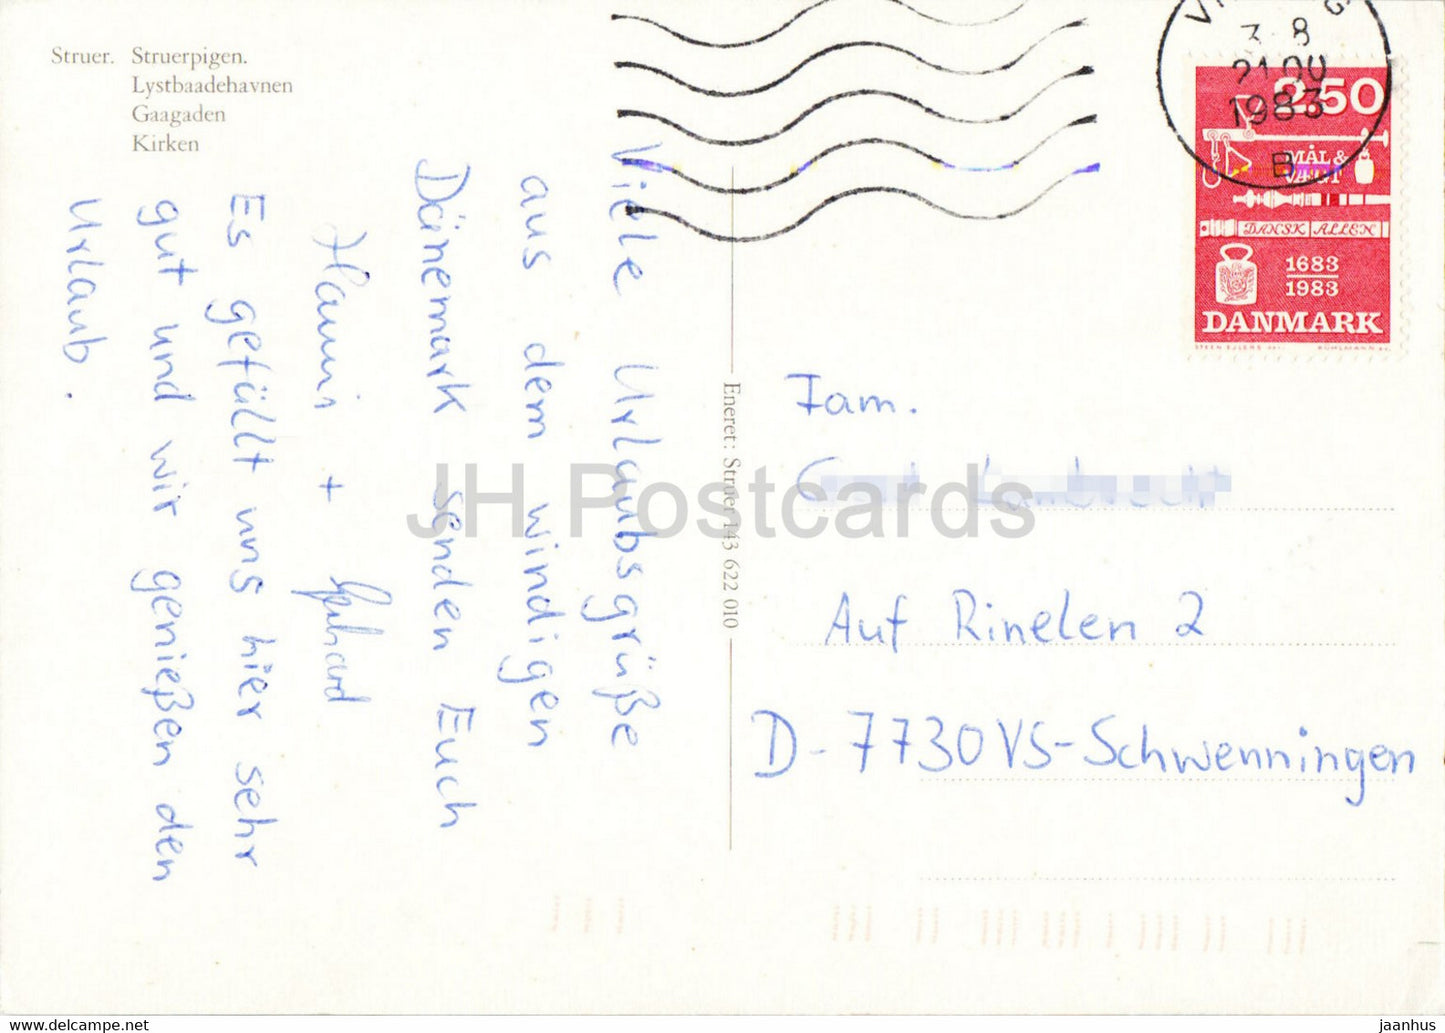 Struer. Struerpigen.
Lystbaadehavnen
Gaagaden
Kirken
Viele Urlaubsgrüße
aus dem windigen
Dänemark senden Euch
Hanni + Gerhard
Es gefällt uns hier sehr
gut und wir genießen den
Urlaub.
Eneret: Struer 143 622 010
3 8
1983
B
2.50
MÅL &
VÆGT
DANSK ALLEN
1683
1983
DANMARK
Fam.
Auf Rinelen 2
D-7730 VS-Schwenningen
JH Postcards
jaanhus © delcampe.net